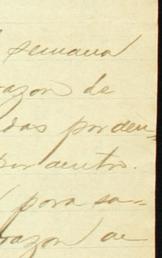 semana
razon de
das por den-
por dentro.
para sa-
razon de